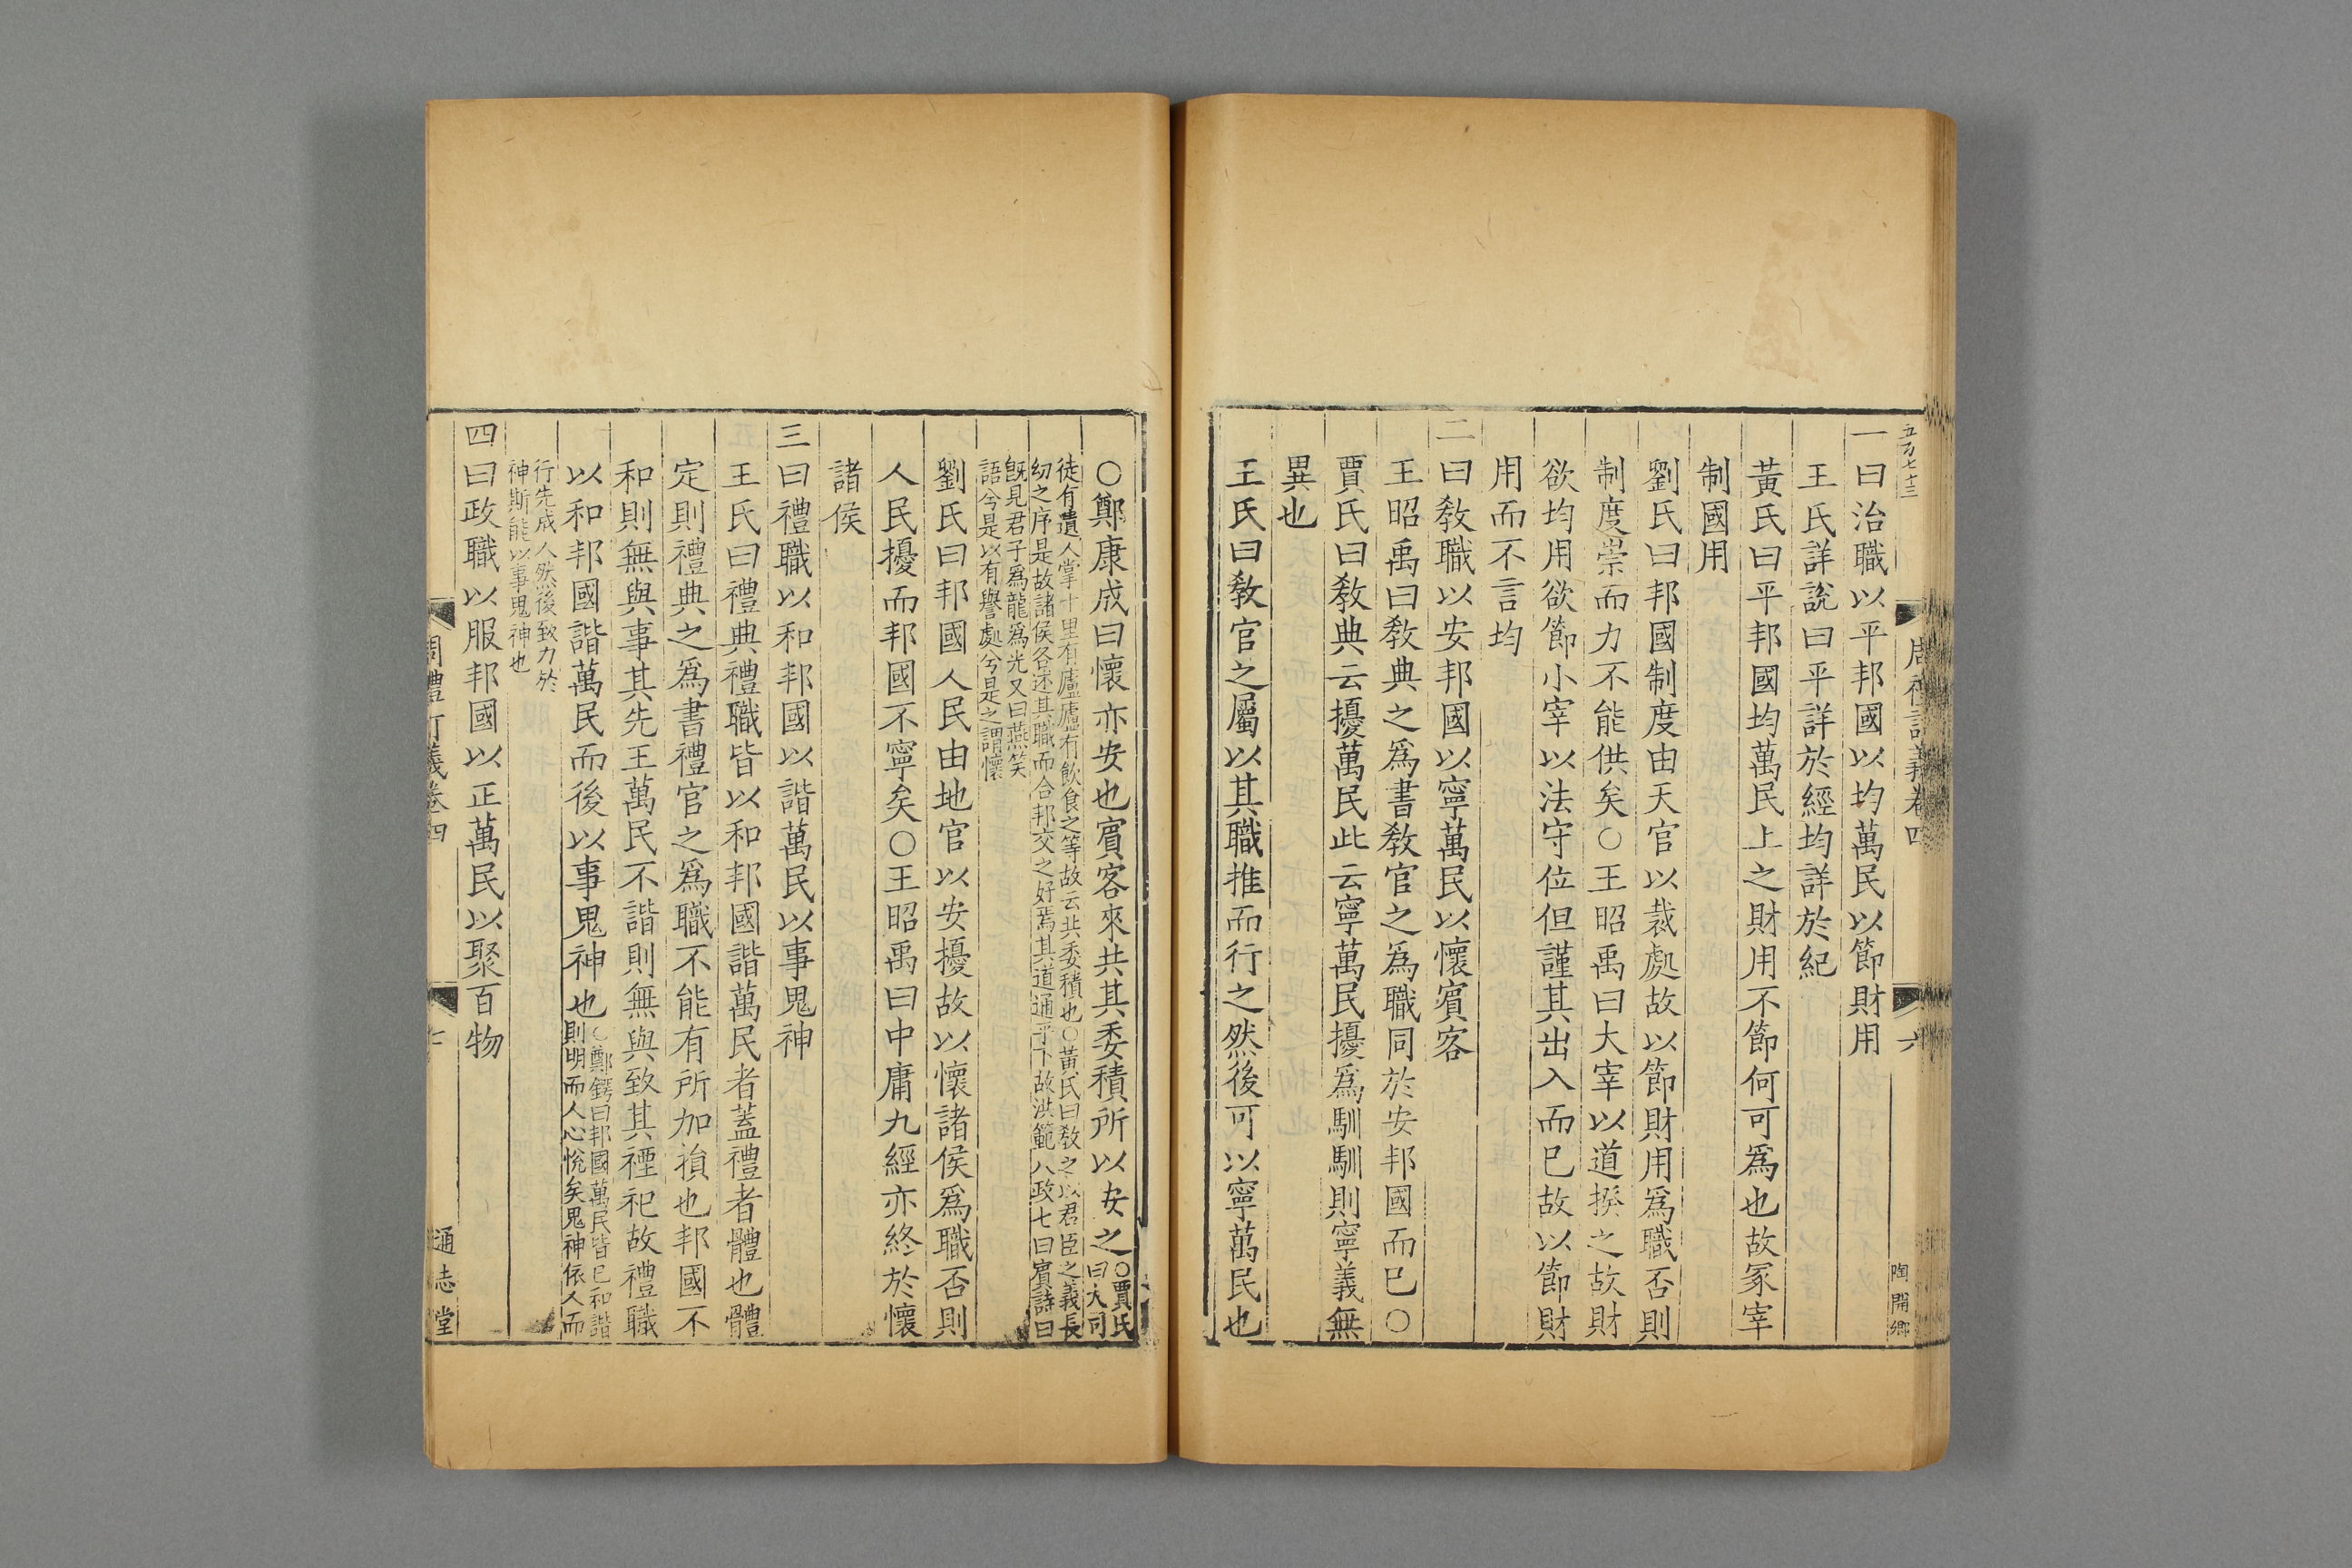 五万七十三
周禮訂義卷四
六
陶開鄉
一曰治職以平邦國以均萬民以節財用
王氏詳說曰平詳於經均詳於紀
黃氏曰平邦國均萬民上之財用不節何可爲也故冢宰
制國用
劉氏曰邦國制度由天官以裁處故以節財用爲職否則
制度崇而力不能供矣○王昭禹曰大宰以道揆之故財
欲均用欲節小宰以法守位但謹其出入而巳故以節財
用而不言均
二曰敎職以安邦國以寧萬民以懷賓客
王昭禹曰敎典之爲書敎官之爲職同於安邦國而巳○
賈氏曰敎典云擾萬民此云寧萬民擾爲馴馴則寧義無
異也
王氏曰敎官之屬以其職推而行之然後可以寧萬民也
○鄭康成曰懷亦安也賓客來共其委積所以安之○賈氏
曰大司
徒有遺人掌十里有廬廬有飮食之等故云共委積也○黃氏曰敎之以君臣之義長
幼之序是故諸侯各述其職而合邦交之好焉其道通乎下故洪範八政七曰賓詩曰
旣見君子爲龍爲光又曰燕笑
語兮是以有譽處兮是之謂懷
劉氏曰邦國人民由地官以安擾故以懷諸侯爲職否則
人民擾而邦國不寧矣○王昭禹曰中庸九經亦終於懷
諸侯
三曰禮職以和邦國以諧萬民以事鬼神
王氏曰禮典禮職皆以和邦國諧萬民者蓋禮者體也體
定則禮典之爲書禮官之爲職不能有所加損也邦國不
和則無與事其先王萬民不諧則無與致其禋祀故禮職
以和邦國諧萬民而後以事鬼神也○鄭鍔曰邦國萬民皆巳和諧
則明而人心悅矣鬼神依人而
行先成人然後致力於
神斯能以事鬼神也
四曰政職以服邦國以正萬民以聚百物
周禮訂義卷四
七
通志堂